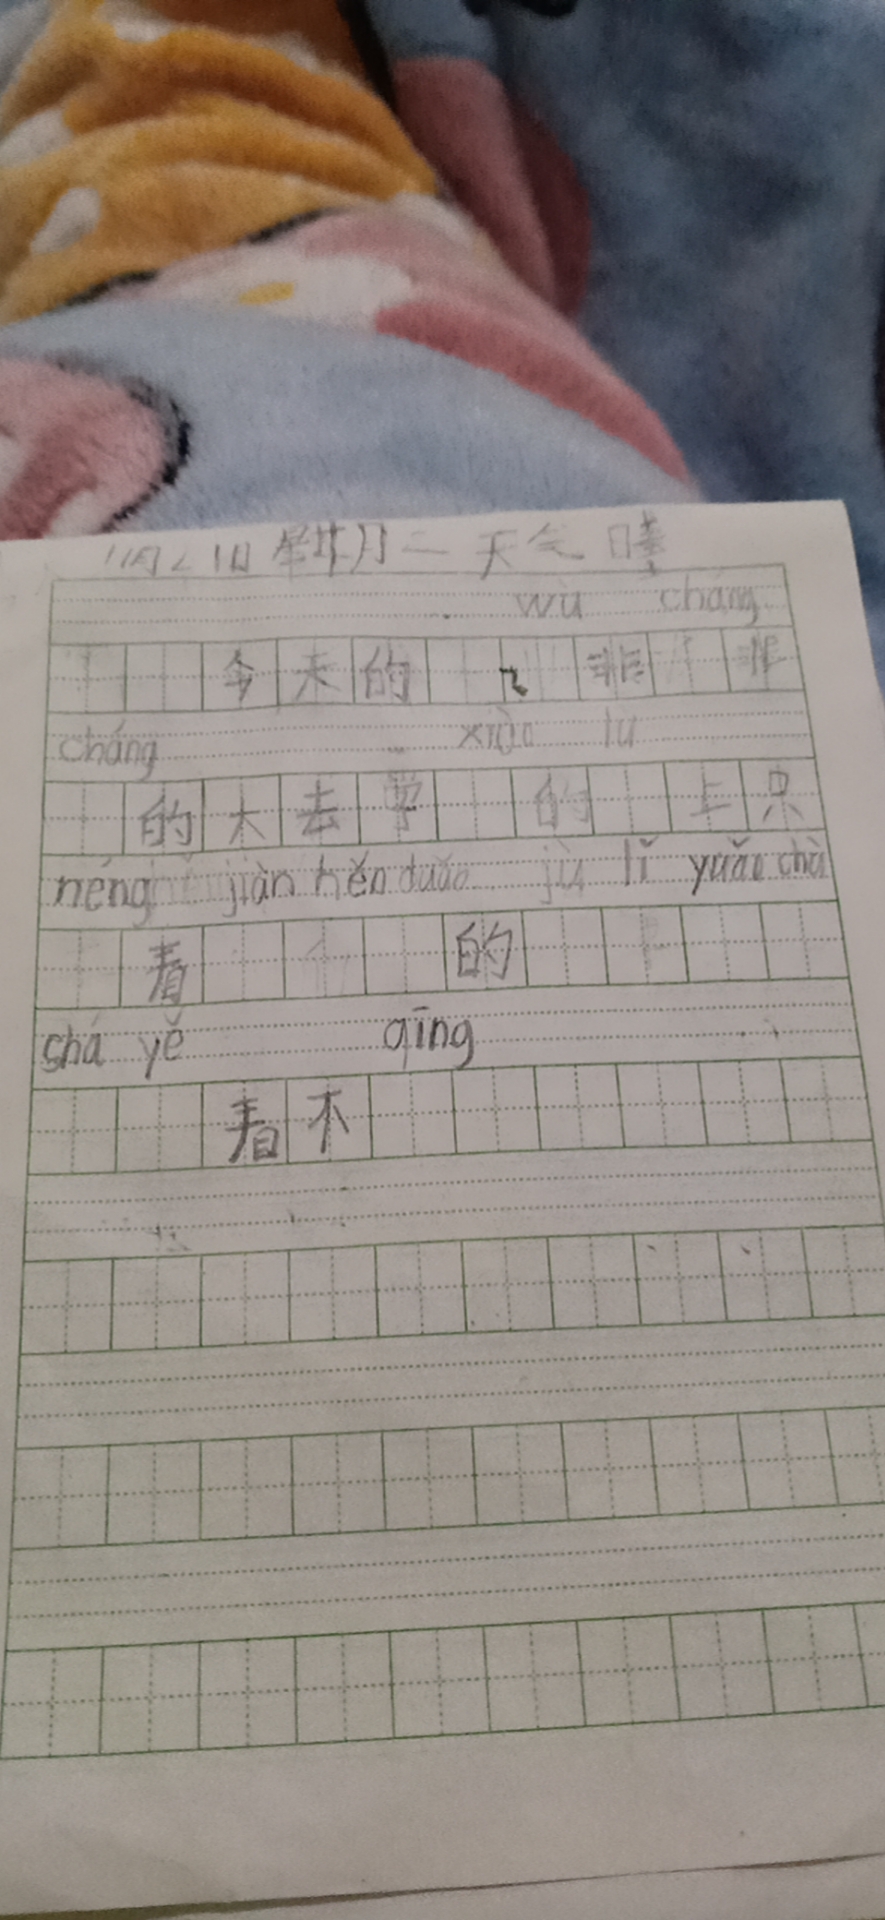 11月21日 星期二 天气 晴
wù cháng
今天的 非 非
cháng xiào lù
的大去学 的 上只
néng jiàn hěn duǎo jù lǐ yuǎn chù
看 的
shá yě qīng
看不